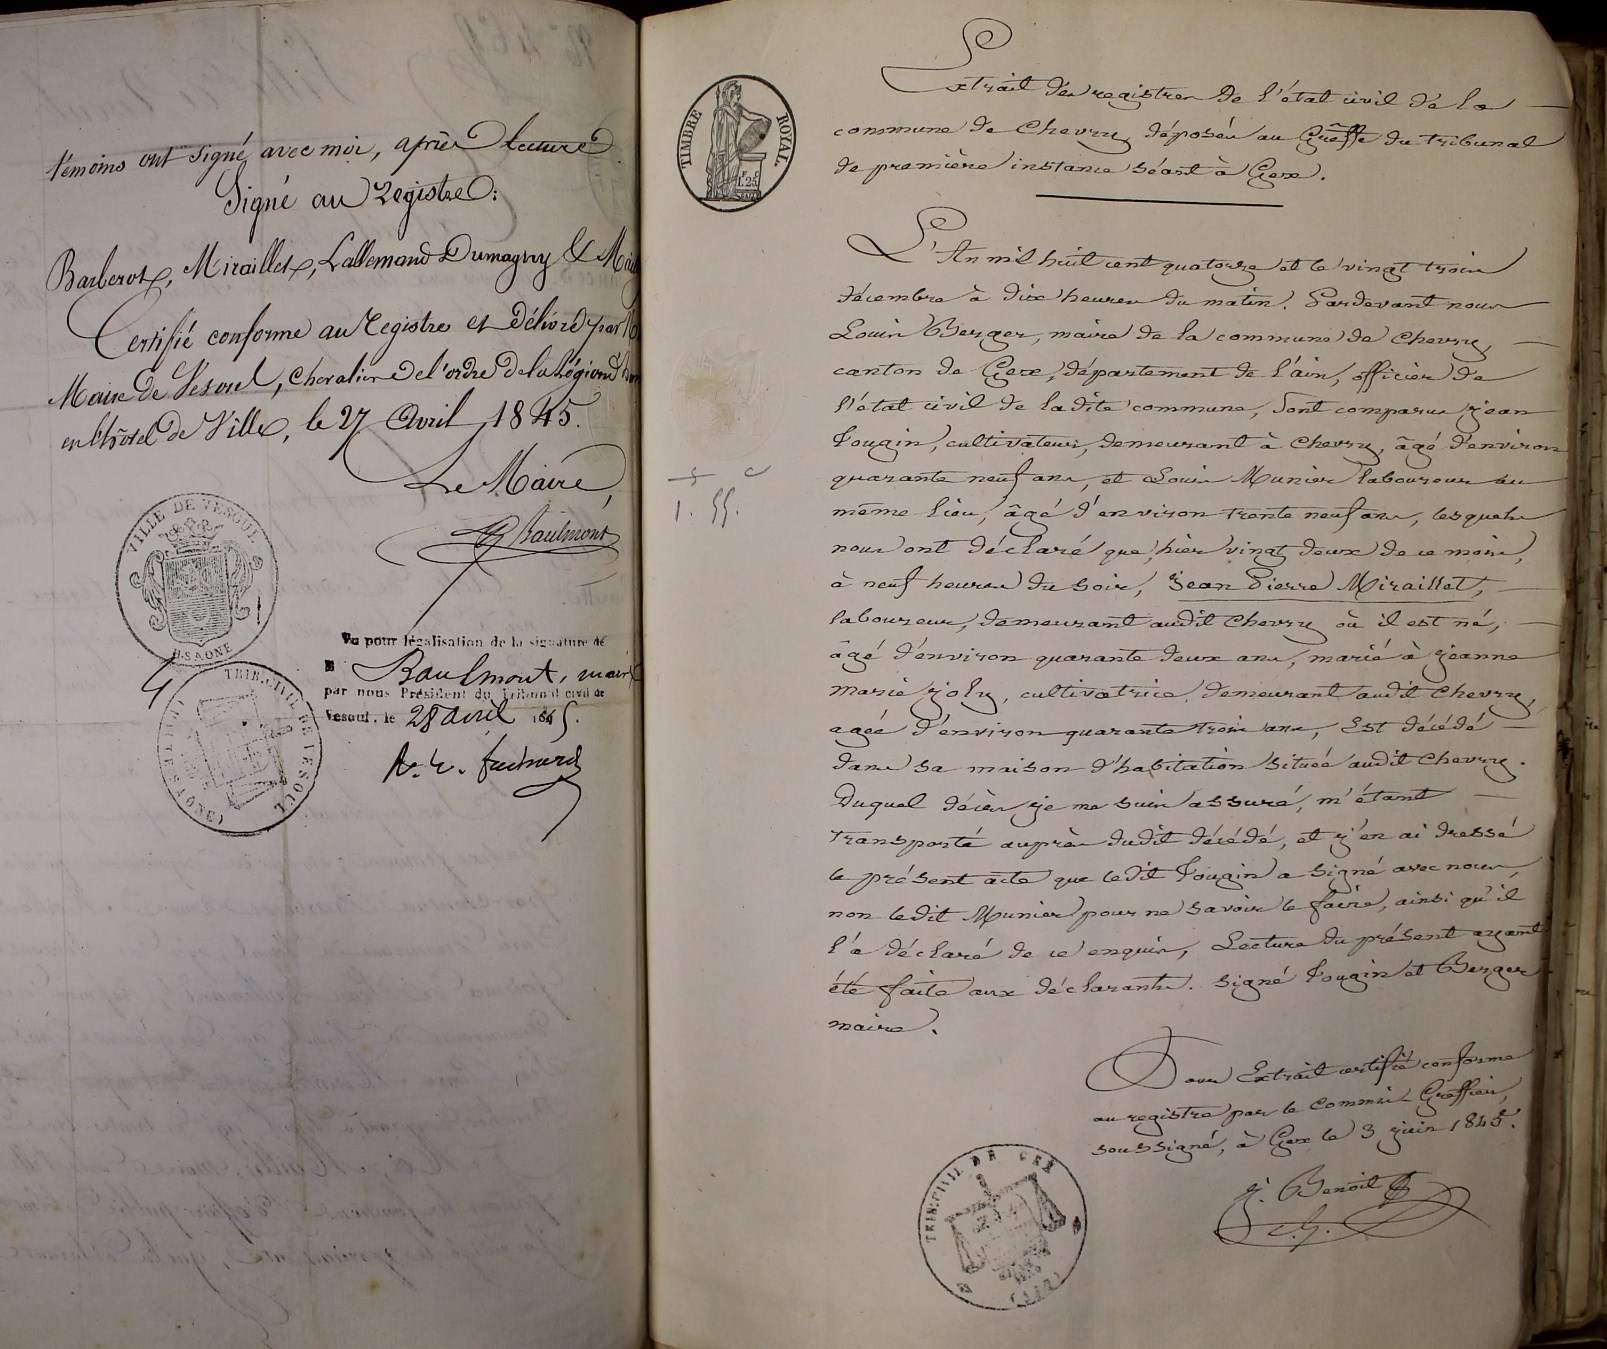 témoins ont signé avec moi, après lecture
Signé au registre:
Barberot, Miraillet, Lallemand Dumagny &
Certifié conforme au registre et délivré par
Maire de Vesoul, Chevalier de l'ordre de la Légion
en l'hôtel de Ville, le 27 Avril 1845.
Le Maire,
Baulmont
VILLE DE VESOUL
H. SAONE
Vu pour légalisation de la signature de
M Baulmont, maire
par nous Président du Tribunal civil de
Vesoul, le 28 avril 1845.
TRIB. CIVIL DE VESOUL
TIMBRE ROYAL
1f 25
Extrait des registres de l'état civil de la
commune de Chevry, déposés au Greffe du tribunal
de première instance séant à Gex.
L'An mil huit cent quatorze et le vingt trois
décembre à dix heures du matin. Pardevant nous
Louis Berger, maire de la commune de Chevry,
canton de Gex, département de l'ain, officier de
l'état civil de ladite commune, Sont comparus jean
Fougin, cultivateur, demeurant à Chevry, âgé d'environ
quarante neuf ans, et Louis Munier laboureur au
même lieu, âgé d'environ trente neuf ans, lesquels
nous ont déclaré que, hier vingt deux de ce mois,
à neuf heures du soir, jean Pierre Miraillet,
laboureur, demeurant audit Chevry où il est né,
âgé d'environ quarante deux ans, marié à jeanne
marie joly, cultivatrice, demeurant audit Chevry,
agée d'environ quarante trois ans, Est décédé
dans sa maison d'habitation située audit Chevry.
Duquel décès je me suis assuré, m'étant
transporté auprès dudit décédé, et j'en ai dressé
le présent acte que ledit Fougin a signé avec nous,
non ledit Munier pour ne savoir le faire, ainsi qu'il
l'a déclaré de ce enquis, Lecture du présent ayant
été faite aux déclarants. signé Fougin et Berger
maire.
1. 55.
Pour Extrait certifié conforme
au registre par le Commis-Greffier,
soussigné, à Gex le 3 juin 1845.
j. Benoit
c. g.
TRIB. CIVIL DE GEX
(AIN)